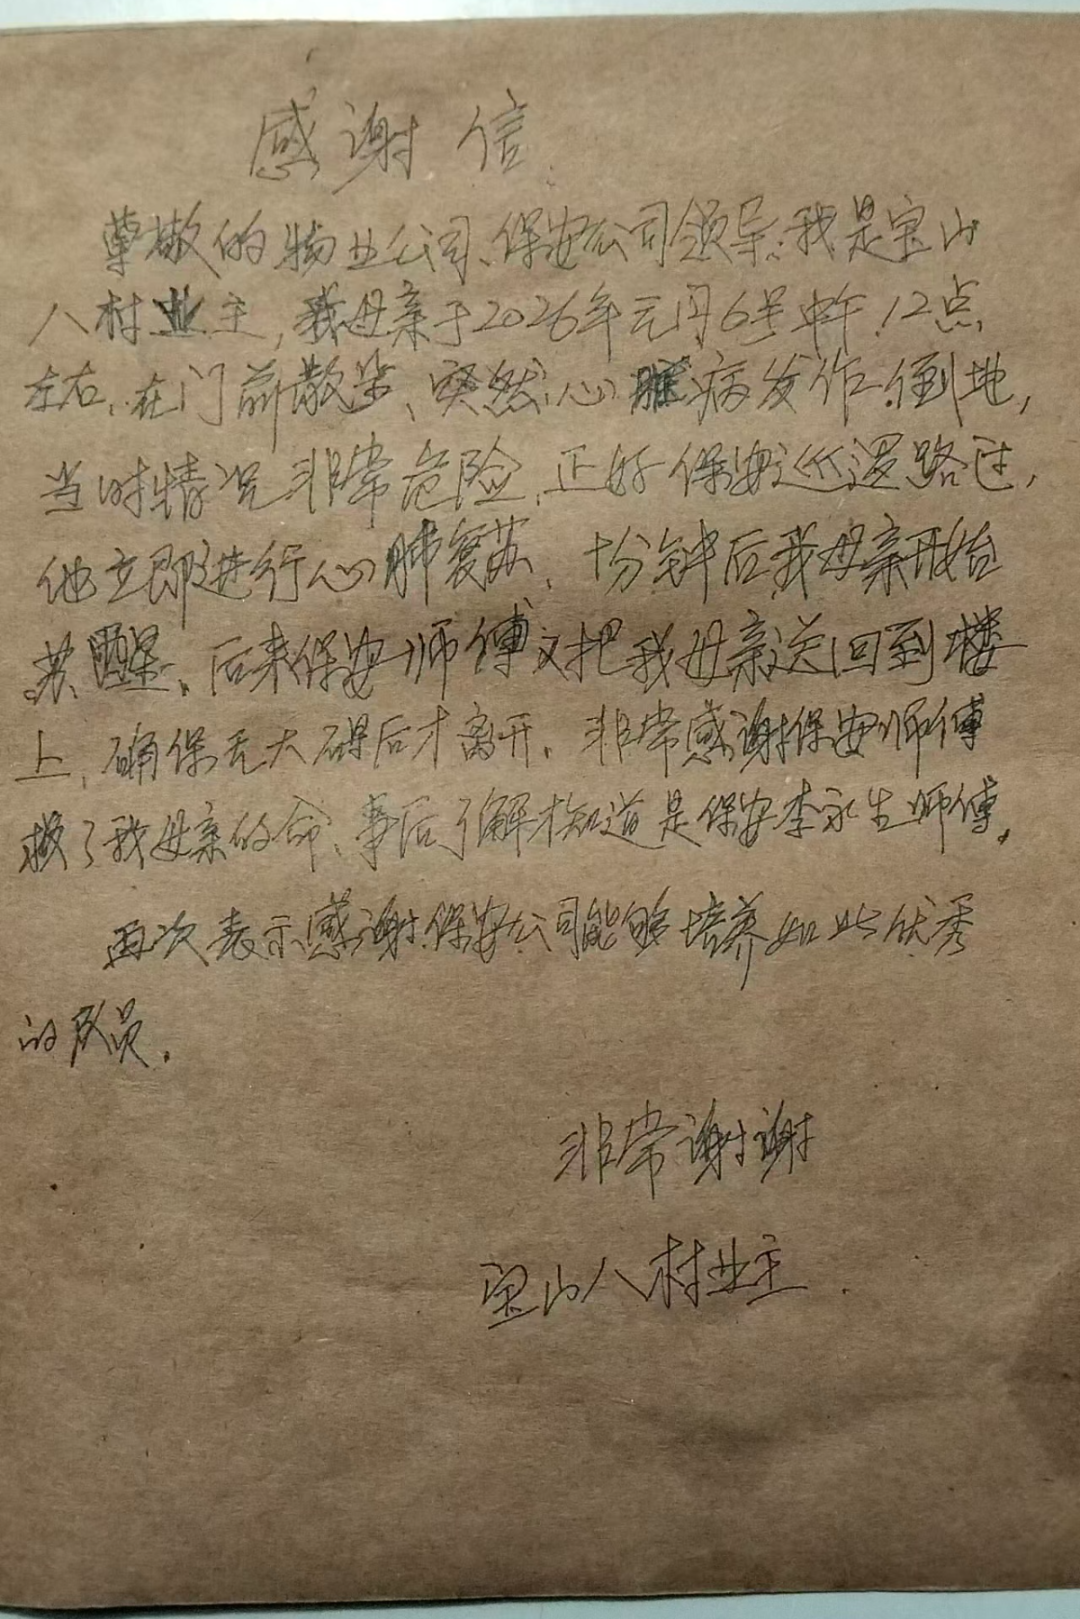 感谢信
尊敬的物业公司、保安公司领导:我是宝山
八村业主,我母亲于2026年元月6号中午12点
左右,在门前散步、突然心脏病发作.倒地,
当时情况非常危险,正好保安巡逻路过,
他立即进行心肺复苏、十分钟后我母亲开始
苏醒、后来保安师傅又把我母亲送回到楼
上,确保无大碍后才离开.非常感谢保安师傅
救了我母亲的命、事后了解才知道是保安李永生师傅。
再次表示感谢.保安公司能够培养如此优秀
的队员.
非常谢谢
宝山八村业主.